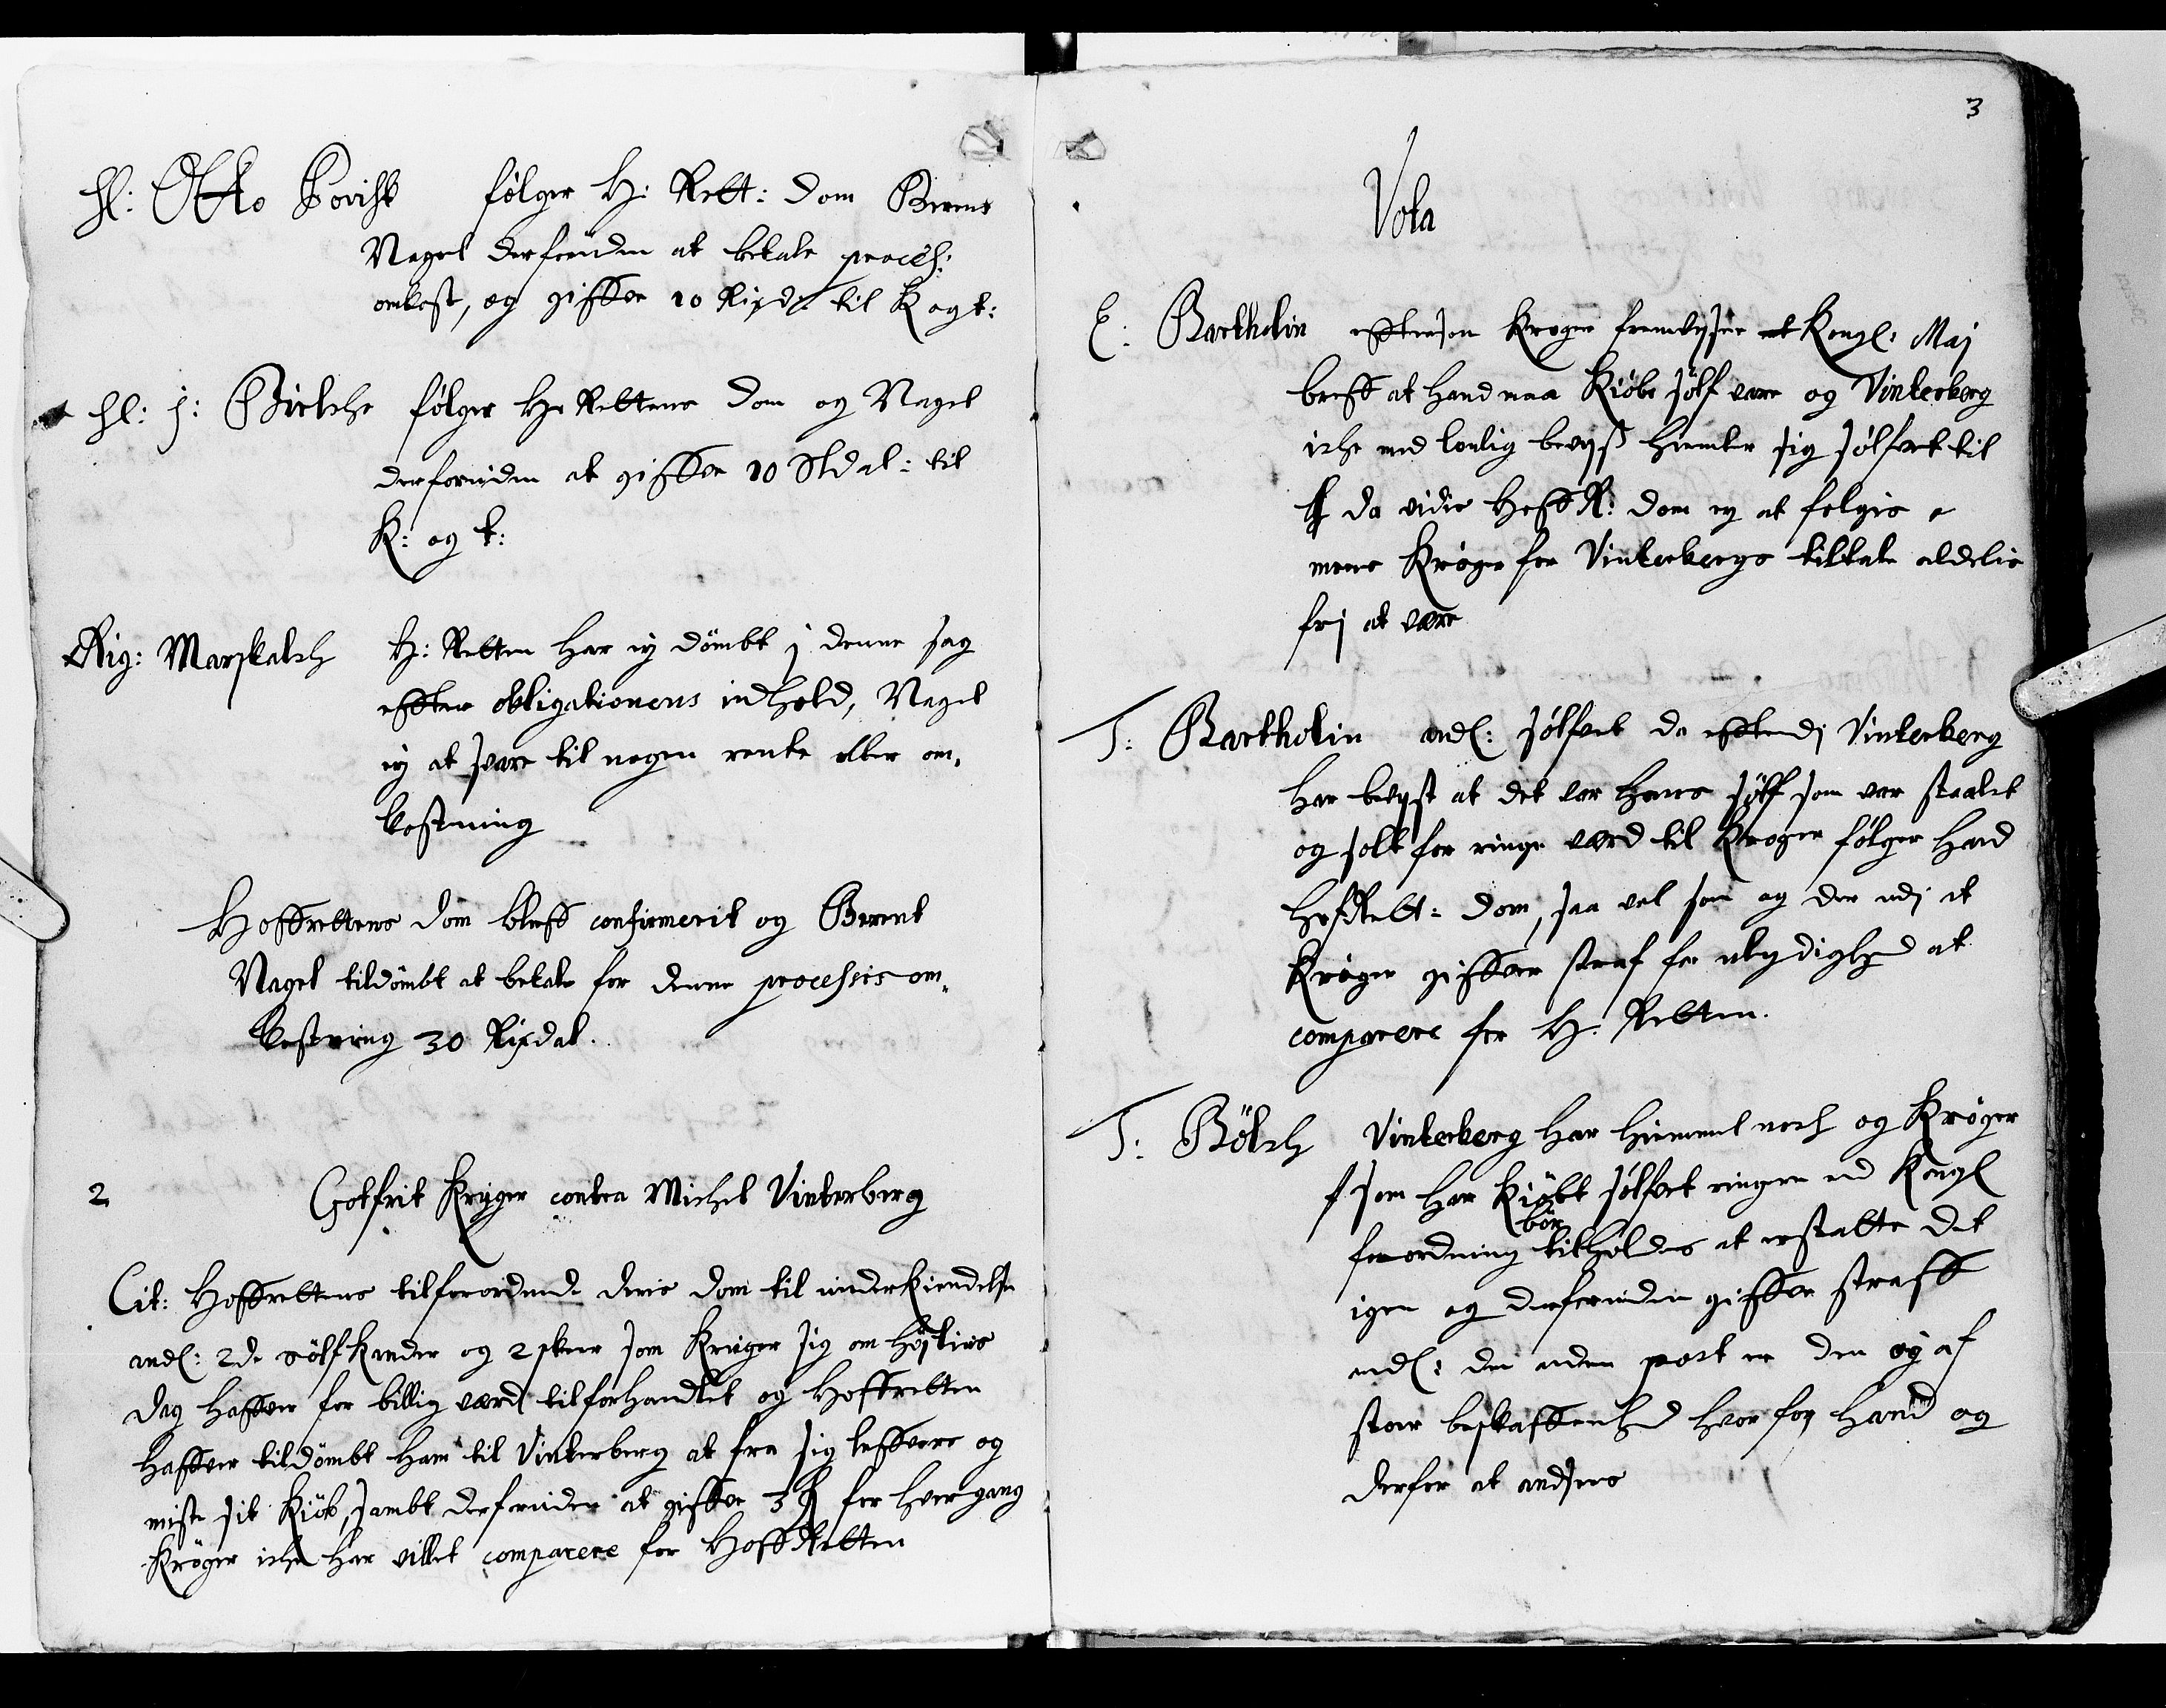 Hl: Otto Povisk følger H: Rett: dom Berent
Nagel derforuden at betale process:
omkost, og giffue 10 Rixd. til K og k:
Hl: H: Bielche følger H: Rettens dom og Nagel
derforuden at giffue 10 Sldal: til
K: og k:
Rig: Marskalch H: Retten har ey dömbt j denne sag
effter obligationens indhold, Nagel
ey at svare til nogen rente eller om,
kostning
Hoffrettens dom bleff confirmerit og Berent
Nagel tildömbt at betale for denne processis om,
kostning 30 Rixdal.
2 Gotfrit Kryger contra Michel Vinterberg
Cit: Hoffrettens tilforordnede deris dom til underkiendelse
andl: 2de sölfkander og 2 skeer som Kruger sig om höylius
dag haffuer for billig værd tilforhandlet og Hoffretten
haffuer tildömbt ham til Vinterberg at fra sig leffuere og
miste sit kiöb, sambt derforuden at giffue 3 for huer gang
Kröger iche har villet comparere for Hoff Retten
3
Vota
C. Bartholin efftersom Kroger fremvyser Kongl: Maj
breff at hand maa kiöbe sölf vare og Vinterberg
iche med lovlig bevyß hiemler sig sölfvet til
da vidis Hoff R: dom ey at følgis
mens Kröger for Vinterbergs tiltale aldelis
frj at være
T: Bartholin andl: sölfvet da efftendj Vinterberg
har bevyst at det var hans sölf som var staalet
og solt for ringe værd til Kroger følger hand
HofRett: dom, saa vel som og der udj at
Kröger giffuer straf for ulydighed at
comparere for H: Retten.
T: Bölch Vinterberg har hiemmel noch og Kröger
som har kiöbt sölfvet ringere end Kongl
bör
forordning tilholdes at erstatte det
igen og derforuden giffue straff
andl: den anden post er den og af
stoer beskaffenhed hvor for hand og
derfor at andsees